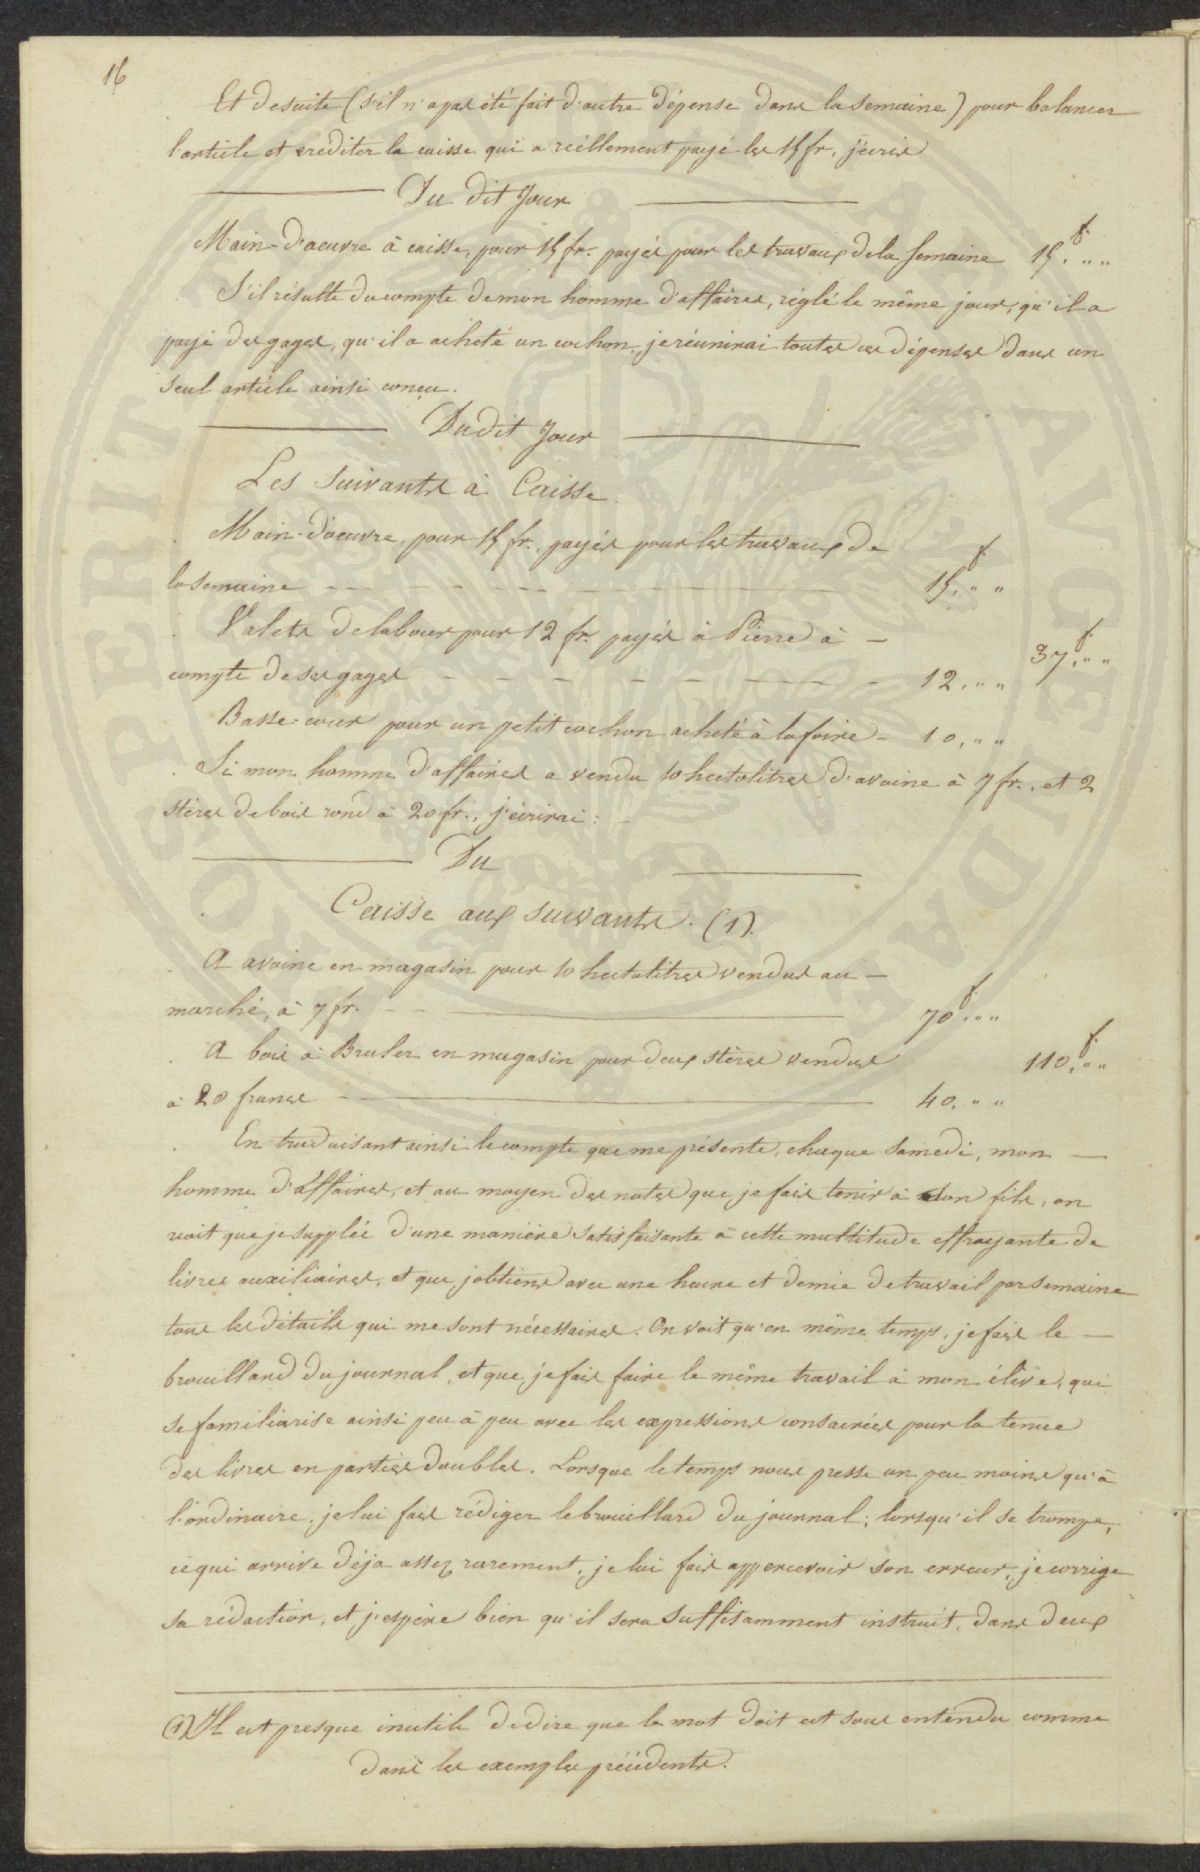 16
Et desuite (s'il n'a pas été fait d'autre dépense dans la semaine) pour balancer
l'article et créditer la caisse qui a réellement payé les 15 fr, j'écris
Du dit Jour
Main-d'oeuvre à caisse, pour 15 fr. payés pour les travaux dela semaine 15.f „ „
S'il résulte du compte de mon homme d'affaires, réglé le même jour, qu'il a
payé des gages, qu'il a acheté un cochon, je réunirai toutes ces dépenses dans un
seul article ainsi conçu.
Dudit Jour
Les suivants à Caisse.
Main-d'oeuvre, pour 15 fr. payés pour les travaux de
la semaine 15.f „ „
Valets de labour pour 12 fr. payés à Pierre à
compte de ses gages 12. „ „ 37.f „ „
Basse-cour pour un petit cochon acheté à la foire 10. „ „
Si mon homme d'affaires a vendu 10 hectolitres d'avoine à 7 fr., et 2
stères de bois rond à 20 fr., j'écrirai :
Du
Caisse aux suivants. (1).
A avoine en magasin pour 10 hectolitres vendus au
marché, à 7 fr. 70.f „ „
A bois à Bruler en magasin pour deux stères vendus 110.f „ „
à 20 francs 40. „ „
En traduisant ainsi le compte que me présente, chaque samedi, mon
homme d'affaires, et au moyen des notes que je fais tenir à son fils, on
voit que je supplée d'une manière satisfaisante à cette multitude effrayante de
livres auxiliaires, et que j'obtiens avec une heure et demie de travail par semaine
tous les détails qui me sont nécessaires. On voit qu'en même temps, je fais le
brouillard du journal, et que je fais faire le même travail à mon élève, qui
se familiarise ainsi peu à peu avec les expressions consacrées pour la tenue
des livres en parties doubles. Lorsque le temps nous presse un peu moins qu'à
l'ordinaire, je lui fais rédiger le brouillard du journal ; lorsqu'il se trompe,
ce qui arrive déja assez rarement, je lui fais appercevoir son erreur, je corrige
sa rédaction, et j'espère bien qu'il sera suffisamment instruit, dans deux
(1) Il est presque inutile de dire que le mot doit est sous entendu comme
dans les exemples précédents.
HOSPERITATI PUBLICAE AUGENDAE